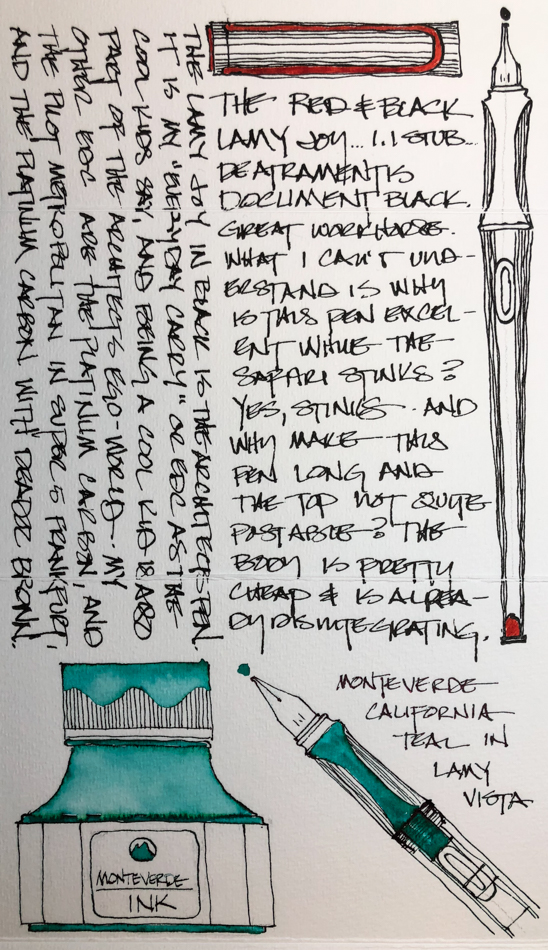 THE RED & BLACK
LAMY JOY... 1.1 STUB...
DEATRAMENTIS
DOCUMENT BLACK.
GREAT WORKHORSE.
WHAT I CAN'T UND-
ERSTAND IS WHY
IS THIS PEN EXCEL-
ENT WHILE THE
SAFARI STINKS?
YES, STINKS. AND
WHY MAKE THIS
PEN LONG AND
THE TOP NOT QUITE
POSTABLE? THE
BODY IS PRETTY
CHEAP & IS ALREA-
DY DISINTEGRATING.
THE LAMY JOY IN BLACK IS THE ARCHITECTS PEN.
IT IS MY "EVERYDAY CARRY" OR EDC AS THE
COOL KIDS SAY, AND BEING A COOL KID IS ALSO
PART OF THE ARCHITECTS EGO-WORLD. MY
OTHER EDC ARE THE PLATINUM CARBON, AND
THE PILOT METROPOLITAN IN SUPER 5 FRANKFURT,
AND THE PLATINUM CARBON WITH DEADOR BROWN.
MONTEVERDE
CALIFORNIA
TEAL IN
LAMY
VISTA
MONTEVERDE
INK